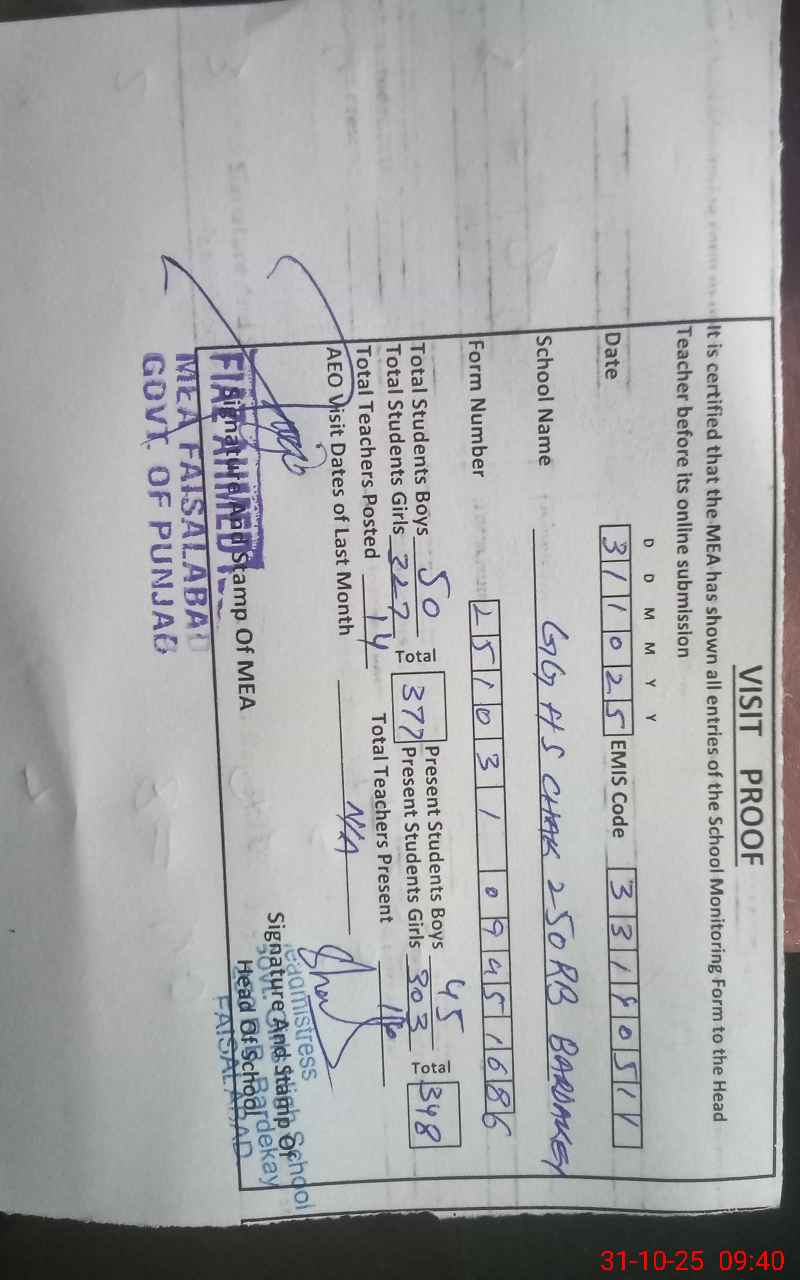 VISIT PROOF
It is certified that the MEA has shown all entries of the School Monitoring Form to the Head
Teacher before its online submission
D D M M Y Y
Date 311025 EMIS Code
School Name GGHS CHAK 250RB BARDAKEY
Form Number 251031 09451686
Total Students Boys 50 Present Students Boys 45
Total Students Girls 327 Total 377 Present Students Girls 303 Total 348
Total Teachers Posted 14 Total Teachers Present
AEO Visit Dates of Last Month N/A
Signature And Stamp Of MEA
FIAZ AHMED
MEA FAISALABAD
GOVT. OF PUNJAB
Signature And Stamp Of
Head Of School
eadmistress
School
Bardekay
FAISALABAD
31-10-25 09:40